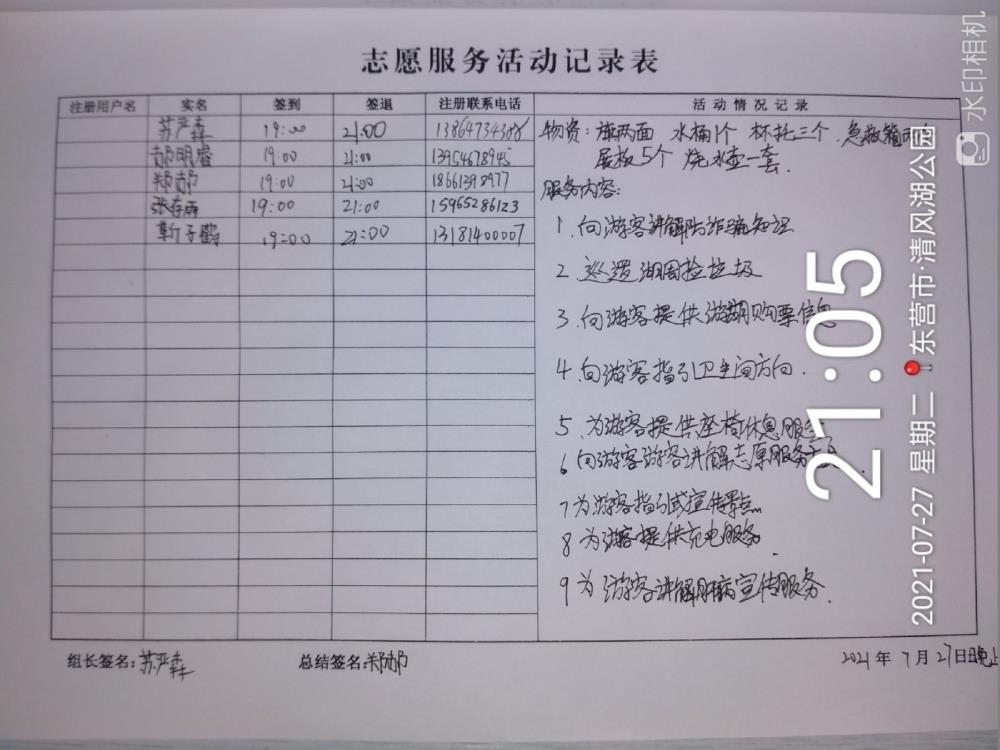 志愿服务活动记录表
注册用户名 实名 签到 签退 注册联系电话 活动情况记录
苏严森 19:00 21:00 13864734308
郝明睿 19:00 21:00 13954678945
郑郝 19:00 21:00 18661398977
张存雨 19:00 21:00 15965286123
靳子鹤 19:00 21:00 13181400007
物资: 旗两面 水桶1个 杯托三个 急救箱
展板5个 烧水壶一套.
服务内容:
1.向游客讲解防诈骗知识
2.巡逻湖周捡垃圾
3.向游客提供游湖购票信息
4.向游客指引卫生间方向.
5.为游客提供座椅休息服务
6向游客游客讲解志愿服务
7为游客指引或宣传景点
8为游客提供充电服务.
9为游客讲解肝病宣传服务.
组长签名:苏严森 总结签名:郑郝 2021年7月27日晚上
水印相机
21:05
2021-07-27 星期二 东营市·清风湖公园